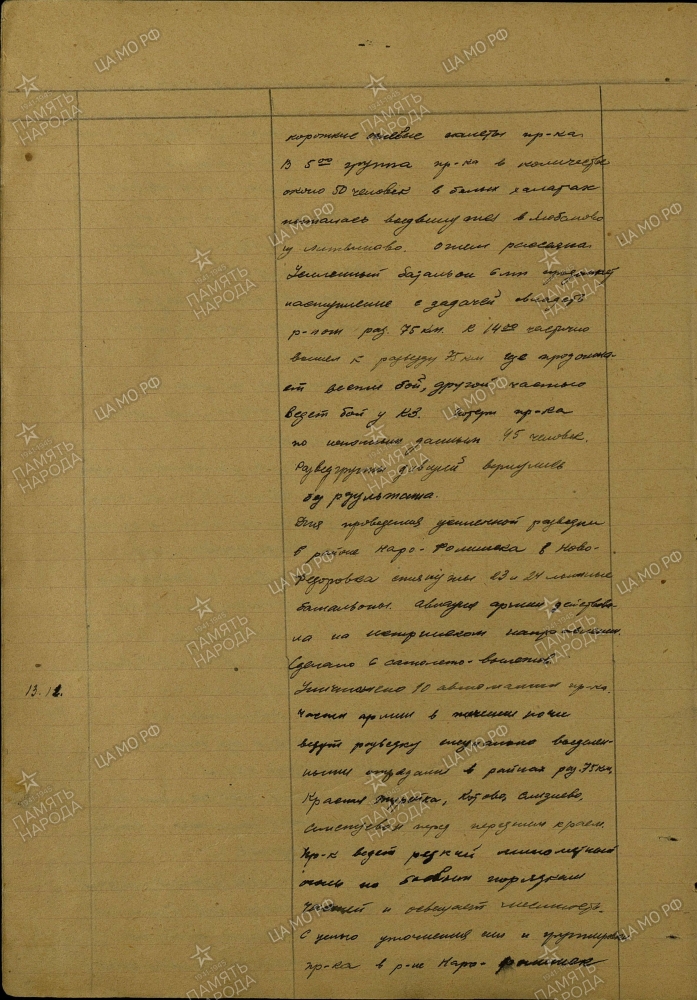 короткие огневые налеты пр-ка.
В 5 00 группа пр-ка в количестве
около 50 человек в белых халатах
пыталась выдвинуться в Любаново
у Литвиново. Огнем рассеяна.
Усиленный батальон 6 продолжает
наступление с задачей овладеть
р-ном раз. 75 км. К 14 00 частично
вышел к разъезду 75 км где продолжа-
ет вести бой, другой частью
ведет бой у КЗ. Потери пр-ка
по неполным данным 45 человек.
Разведгруппы дивизий вернулись
без результата.
Для проведения усиленной разведки
в районе Наро-Фоминска в Ново-
Федоровка стянуты 23 и 24 лыжные
батальоны. Авиация армии действова-
ла на направлении.
Сделано 6 самолето-вылетов.
Уничтожено 20 автомашин пр-ка.
13.12.
Части армии в течение ночи
ведут разведку специально выделен-
ными отрядами в районах раз. 75 км,
Красная Турейка, Котово, Слизнево,
перед передним краем.
Пр-к ведет редкий минометный
огонь по боевым порядкам
частей и освещает местность.
С целью уточнения и группировки
пр-ка в р-не Наро-Фоминск
ПАМЯТЬ НАРОДА
ЦА МО РФ